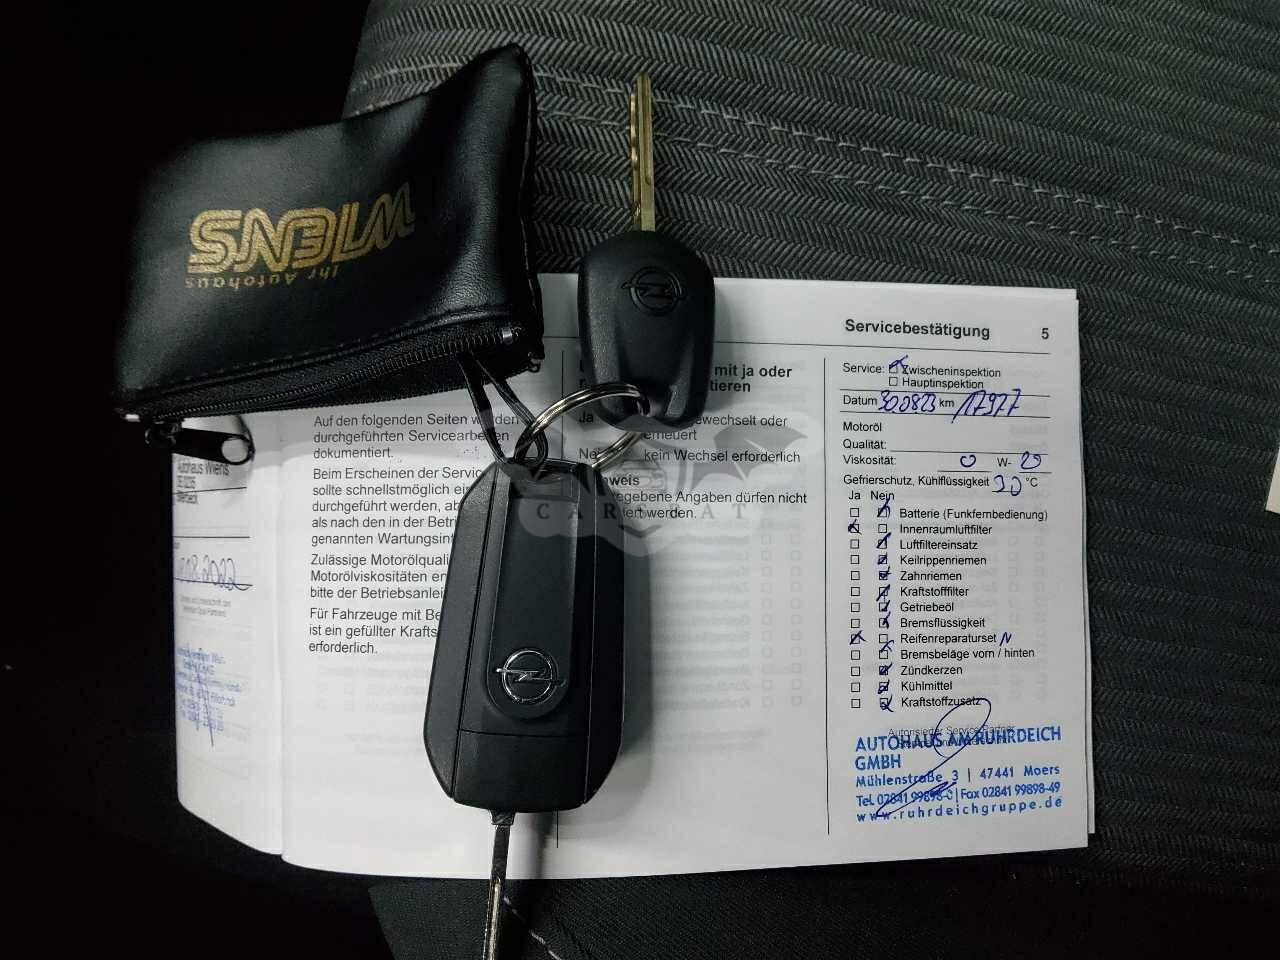 WIENS
Ihr Autohaus
Servicebestätigung 5
Auf den folgenden Seiten werden
durchgeführten Servicearbeiten
dokumentiert.
Beim Erscheinen der Servic
sollte schnellstmöglich ein
durchgeführt werden, ab
als nach den in der Betri
genannten Wartungsint
Zulässige Motorölquali
Motorölviskositäten en
bitte der Betriebsanlei
Für Fahrzeuge mit Be
ist ein gefüllter Krafts
erforderlich.
mit ja oder
tieren
Ja ewechselt oder
erneuert
Ne kein Wechsel erforderlich
nweis
egebene Angaben dürfen nicht
iert werden.
CARS AT
Service: Zwischeninspektion
Hauptinspektion
Datum 30.08.23 km 17977
Motoröl
Qualität:
Viskosität: 0 W- 20
Gefrierschutz, Kühlflüssigkeit 30 °C
Ja Nein
Batterie (Funkfernbedienung)
Innenraumluftfilter
Luftfiltereinsatz
Keilrippenriemen
Zahnriemen
Kraftstofffilter
Getriebeöl
Bremsflüssigkeit
Reifenreparaturset N
Bremsbeläge vorn / hinten
Zündkerzen
Kühlmittel
Kraftstoffzusatz
Autorisierter Service Partner
AUTOHAUS AM RUHRDEICH
GMBH
Mühlenstraße 3 | 47441 Moers
Tel. 02841 99898-0 | Fax 02841 99898-49
www.ruhrdeichgruppe.de
Autohaus Wiens